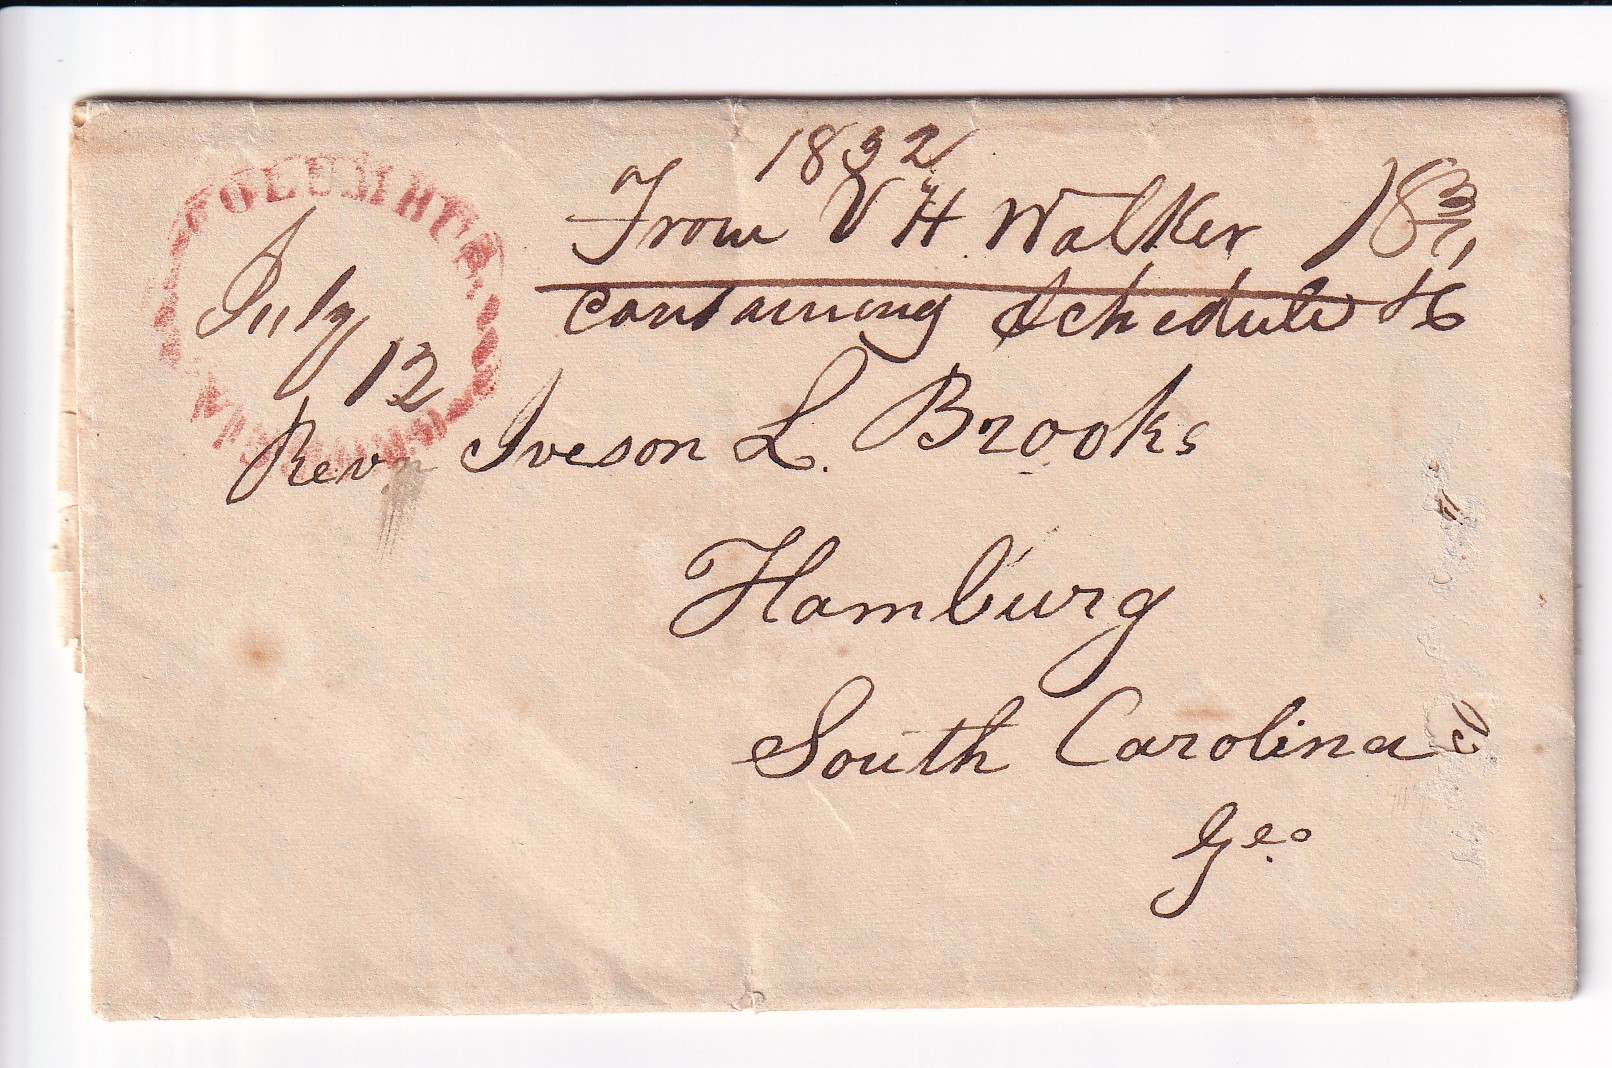 COLUMBUS
GEORGIA
July
12
1832
From V H Walker 18¾
containing Schedule &c
Rev. Iveson L. Brooks
Hamburg
South Carolina
Geo